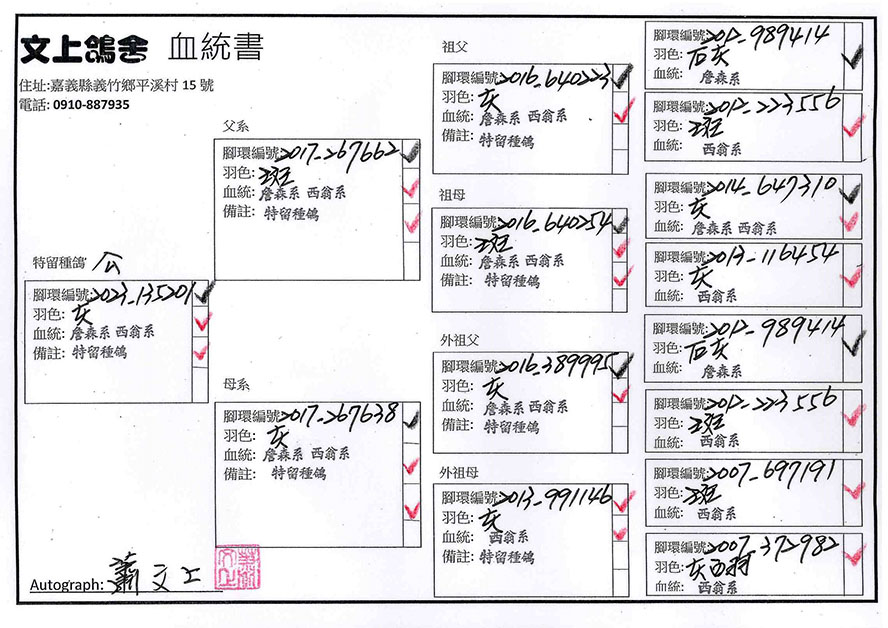 文上鴿舍 血統書
住址:嘉義縣義竹鄉平溪村 15 號
電話: 0910-887935
特留種鴿 公
腳環編號:2023-135201
羽色: 灰
血統: 詹森系 西翁系
備註: 特留種鴿
父系
腳環編號:2017-267662
羽色: 斑
血統: 詹森系 西翁系
備註: 特留種鴿
母系
腳環編號:2017-267638
羽色: 灰
血統: 詹森系 西翁系
備註: 特留種鴿
祖父
腳環編號:2016-640223
羽色: 灰
血統: 詹森系 西翁系
備註: 特留種鴿
祖母
腳環編號:2016-640254
羽色: 斑
血統: 詹森系 西翁系
備註: 特留種鴿
外祖父
腳環編號:2016-389995
羽色: 灰
血統: 詹森系 西翁系
備註: 特留種鴿
外祖母
腳環編號:2013-991146
羽色: 灰
血統: 西翁系
備註: 特留種鴿
腳環編號:2012-989414
羽色: 石灰
血統: 詹森系
腳環編號:2012-223556
羽色: 斑
血統: 西翁系
腳環編號:2014-647310
羽色: 灰
血統: 詹森系 西翁系
腳環編號:2013-116454
羽色: 灰
血統: 西翁系
腳環編號:2012-989414
羽色: 石灰
血統: 詹森系
腳環編號:2012-223556
羽色: 斑
血統: 西翁系
腳環編號:2007-697191
羽色: 斑
血統: 西翁系
腳環編號:2007-372982
羽色: 灰白羽
血統: 西翁系
Autograph: 蕭文上